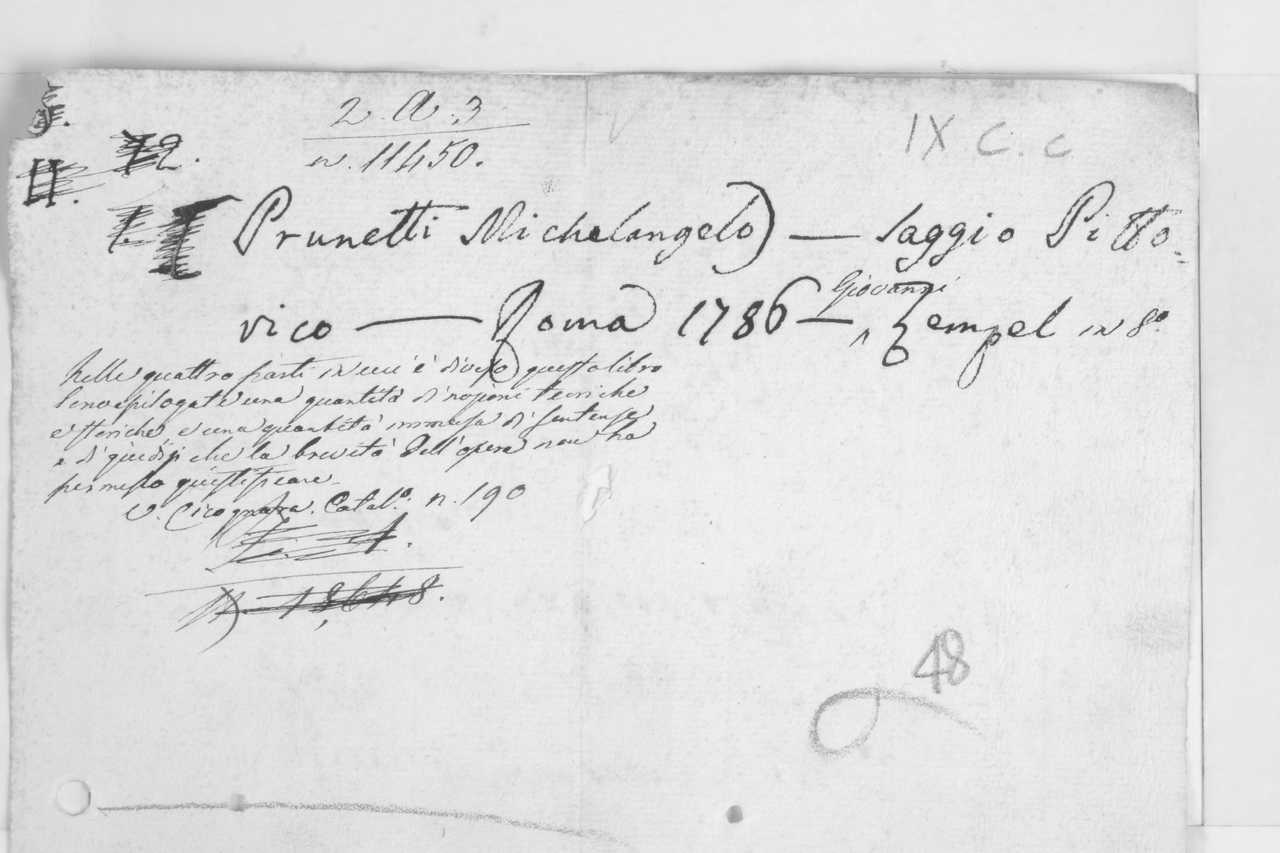 2. A. 3
n. 11450.
IX C. c
II.
12.
Prunetti Michelangelo) — Saggio Pitto-
rico — Roma 1786 — Giovanni Zempel in 8º
Nelle quattro parti in cui è diviso questo libro
sono epilogate una quantità di nozioni teoriche
e storiche e una quantità immensa di sentenze
e di giudizi che la brevità dell'opera non ha
permesso giustificare
V. Cicognara. Catal.º n. 190
n. 18648.
48